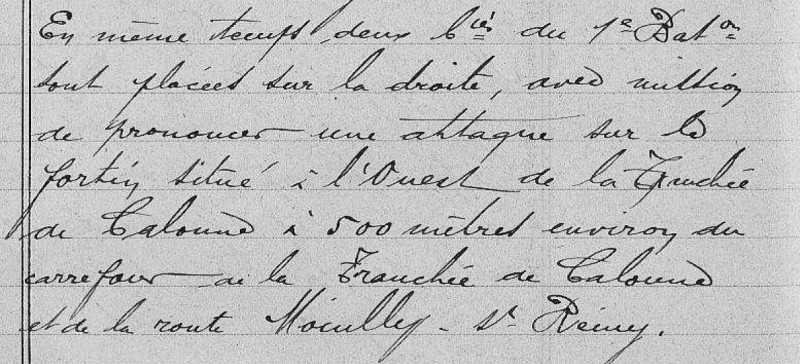 En même temps deux Cies du 1e Baton
sont placées sur la droite, avec mission
de prononcer une attaque sur le
fortin situé à l'Ouest de la Tranchée
de Calonne à 500 mètres environ du
carrefour de la Tranchée de Calonne
et de la route Mouilly - St Rémy.